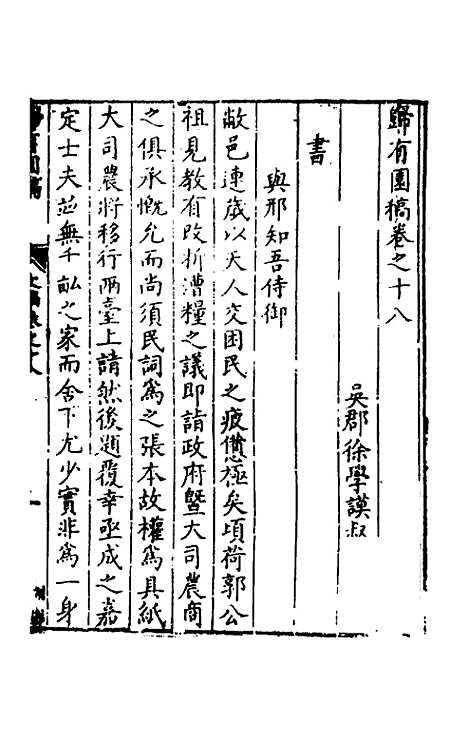 歸有園稿卷之十八
吳郡徐學謨叔
書
與邢知吾侍御
敝邑連歲以天人交困民之疲憊極矣頃荷郭公
祖見教有改折漕糧之議即請政府暨大司農商
之俱承慨允而尚須民詞為之張本故權為具紙
大司農將移行兩臺上請然後題覆幸亟成之嘉
定士夫並無千畝之家而舍下尤少實非為一身